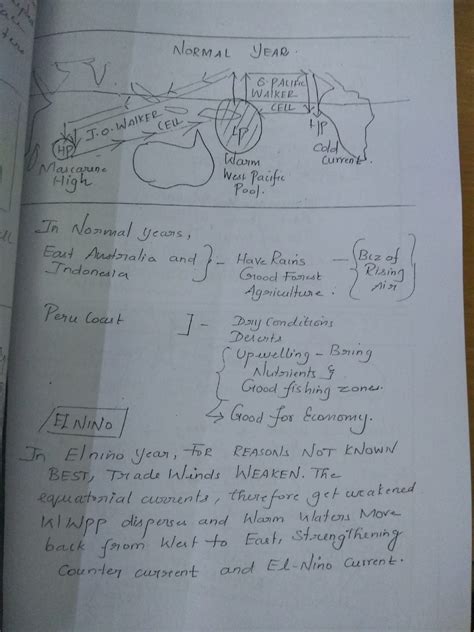 NORMAL YEAR.
S. PACIFIC
WALKER
CELL
I.O. WALKER
CELL
HP
LP
HP
Cold
Current.
Mascarene
High
Warm
West Pacific
Pool.
In Normal years,
East Australia and
Indonesia
Have Rains
Good Forest
Agriculture.
Bcz of
Rising
Air
Peru Coast
Dry Conditions
Deserts
Upwelling - Bring
Nutrients &
Good fishing zones.
Good for Economy.
El NINO
In El nino year, FOR REASONS NOT KNOWN
BEST, Trade Winds WEAKEN. The
equatorial currents, therefore get weakened
WPP disperses and Warm Waters Move
back from West to East, Strengthening
Counter current and El-Nino Current.